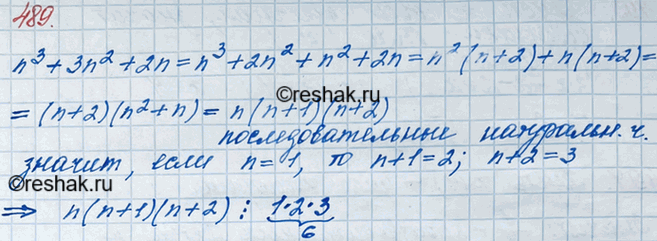 489.
n³ + 3n² + 2n = n³ + 2n² + n² + 2n = n²(n+2) + n(n+2) =
©reshak.ru
= (n+2)(n²+n) = n(n+1)(n+2)
последовательные натуральн. ч.
значит, если n = 1, то n+1 = 2; n+2 = 3
©reshak.ru
⇒ n(n+1)(n+2) ⋮ 1·2·3
6